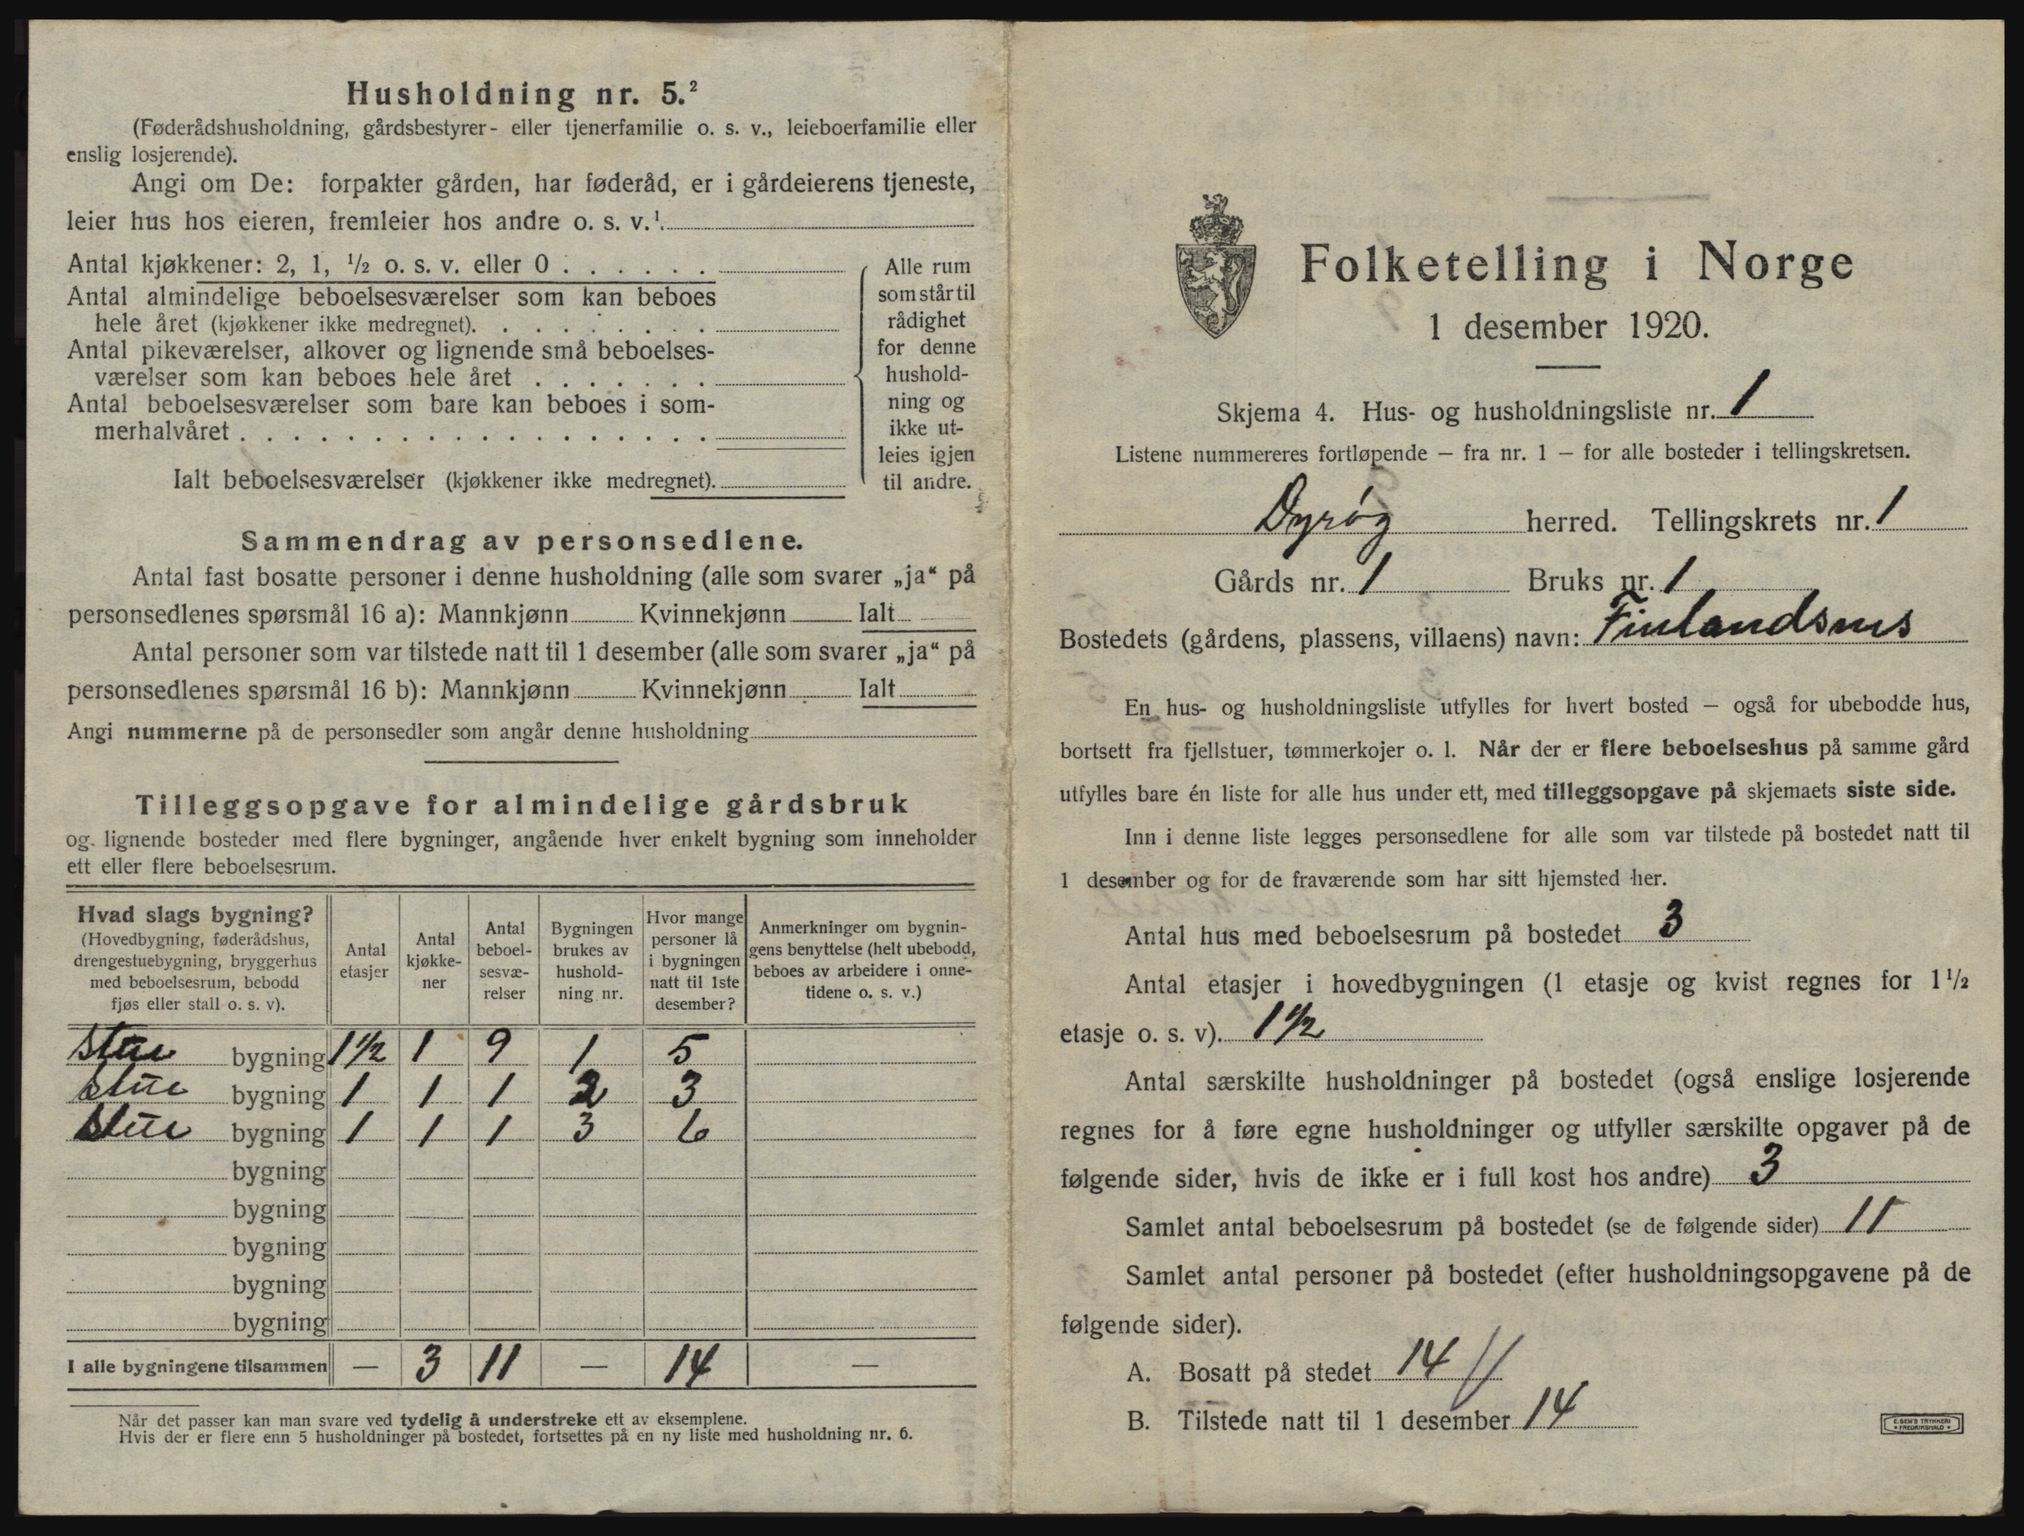 Husholdning nr. 5.²
(Føderådshusholdning, gårdsbestyrer- eller tjenerfamilie o. s. v., leieboerfamilie eller
enslig losjerende).
Angi om De: forpakter gården, har føderåd, er i gårdeierens tjeneste,
leier hus hos eieren, fremleier hos andre o. s. v.¹
Antal kjøkkener: 2, 1, ½ o. s. v. eller 0 . . . . . .
Antal almindelige beboelsesværelser som kan beboes
hele året (kjøkkener ikke medregnet). . . . . . . . .
Antal pikeværelser, alkover og lignende små beboelses-
værelser som kan beboes hele året . . . . . . .
Antal beboelsesværelser som bare kan beboes i som-
merhalvåret . . . . . . . . . . . . . . . . . .
Ialt beboelsesværelser (kjøkkener ikke medregnet).
Alle rum
som står til
rådighet
for denne
hushold-
ning og
ikke ut-
leies igjen
til andre.
Sammendrag av personsedlene.
Antal fast bosatte personer i denne husholdning (alle som svarer „ja“ på
personsedlenes spørsmål 16 a): Mannkjønn Kvinnekjønn Ialt
Antal personer som var tilstede natt til 1 desember (alle som svarer „ja“ på
personsedlenes spørsmål 16 b): Mannkjønn Kvinnekjønn Ialt
Angi nummerne på de personsedler som angår denne husholdning
Tilleggsopgave for almindelige gårdsbruk
og lignende bosteder med flere bygninger, angående hver enkelt bygning som inneholder
ett eller flere beboelsesrum.
Hvad slags bygning?
(Hovedbygning, føderådshus,
drengestuebygning, bryggerhus
med beboelsesrum, bebodd
fjøs eller stall o. s. v).
Antal
etasjer
Antal
kjøkke-
ner
Antal
beboel-
sesvæ-
relser
Bygningen
brukes av
hushold-
ning nr.
Hvor mange
personer lå
i bygningen
natt til 1ste
desember?
Anmerkninger om bygnin-
gens benyttelse (helt ubebodd,
beboes av arbeidere i onne-
tidene o. s. v.)
Stue bygning 1½ 1 9 1 5
Stue bygning 1 1 1 2 3
Stue bygning 1 1 1 3 6
bygning
bygning
bygning
bygning
bygning
I alle bygningene tilsammen — 3 11 — 14 —
Når det passer kan man svare ved tydelig å understreke ett av eksemplene.
Hvis der er flere enn 5 husholdninger på bostedet, fortsettes på en ny liste med husholdning nr. 6.
Folketelling i Norge
1 desember 1920.
Skjema 4. Hus- og husholdningsliste nr. 1
Listene nummereres fortløpende — fra nr. 1 — for alle bosteder i tellingskretsen.
Dyrøy herred. Tellingskrets nr. 1
Gårds nr. 1 Bruks nr. 1
Bostedets (gårdens, plassens, villaens) navn: Finlandsnes
En hus- og husholdningsliste utfylles for hvert bosted — også for ubebodde hus,
bortsett fra fjellstuer, tømmerkojer o. l. Når der er flere beboelseshus på samme gård
utfylles bare én liste for alle hus under ett, med tilleggsopgave på skjemaets siste side.
Inn i denne liste legges personsedlene for alle som var tilstede på bostedet natt til
1 desember og for de fraværende som har sitt hjemsted her.
Antal hus med beboelsesrum på bostedet 3
Antal etasjer i hovedbygningen (1 etasje og kvist regnes for 1½
etasje o. s. v). 1½
Antal særskilte husholdninger på bostedet (også enslige losjerende
regnes for å føre egne husholdninger og utfyller særskilte opgaver på de
følgende sider, hvis de ikke er i full kost hos andre) 3
Samlet antal beboelsesrum på bostedet (se de følgende sider) 11
Samlet antal personer på bostedet (efter husholdningsopgavene på de
følgende sider).
A. Bosatt på stedet 14
B. Tilstede natt til 1 desember 14
E. SEM'S TRYKKERI
FREDRIKSHALD